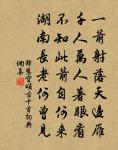 一箭射落天邊雁
千人萬人著眼看
不知此箭自何來
湖南長老何曾見
釋慧空頌古十首詞典
網集